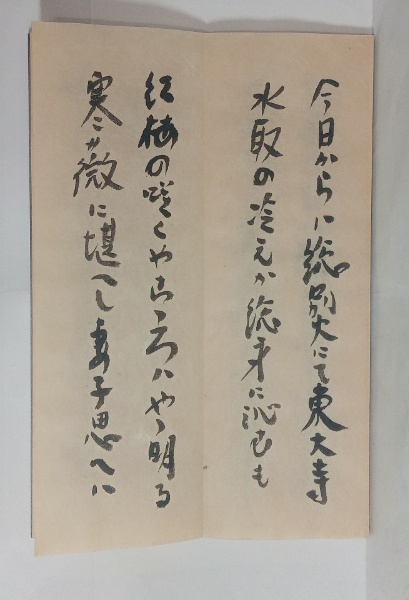 今日からハ総別火にて東大寺
水取の冷えか総身に沁むも
紅梅の咲くやこゝろハやゝ明る
寒か微に堪へし妻子思へハ